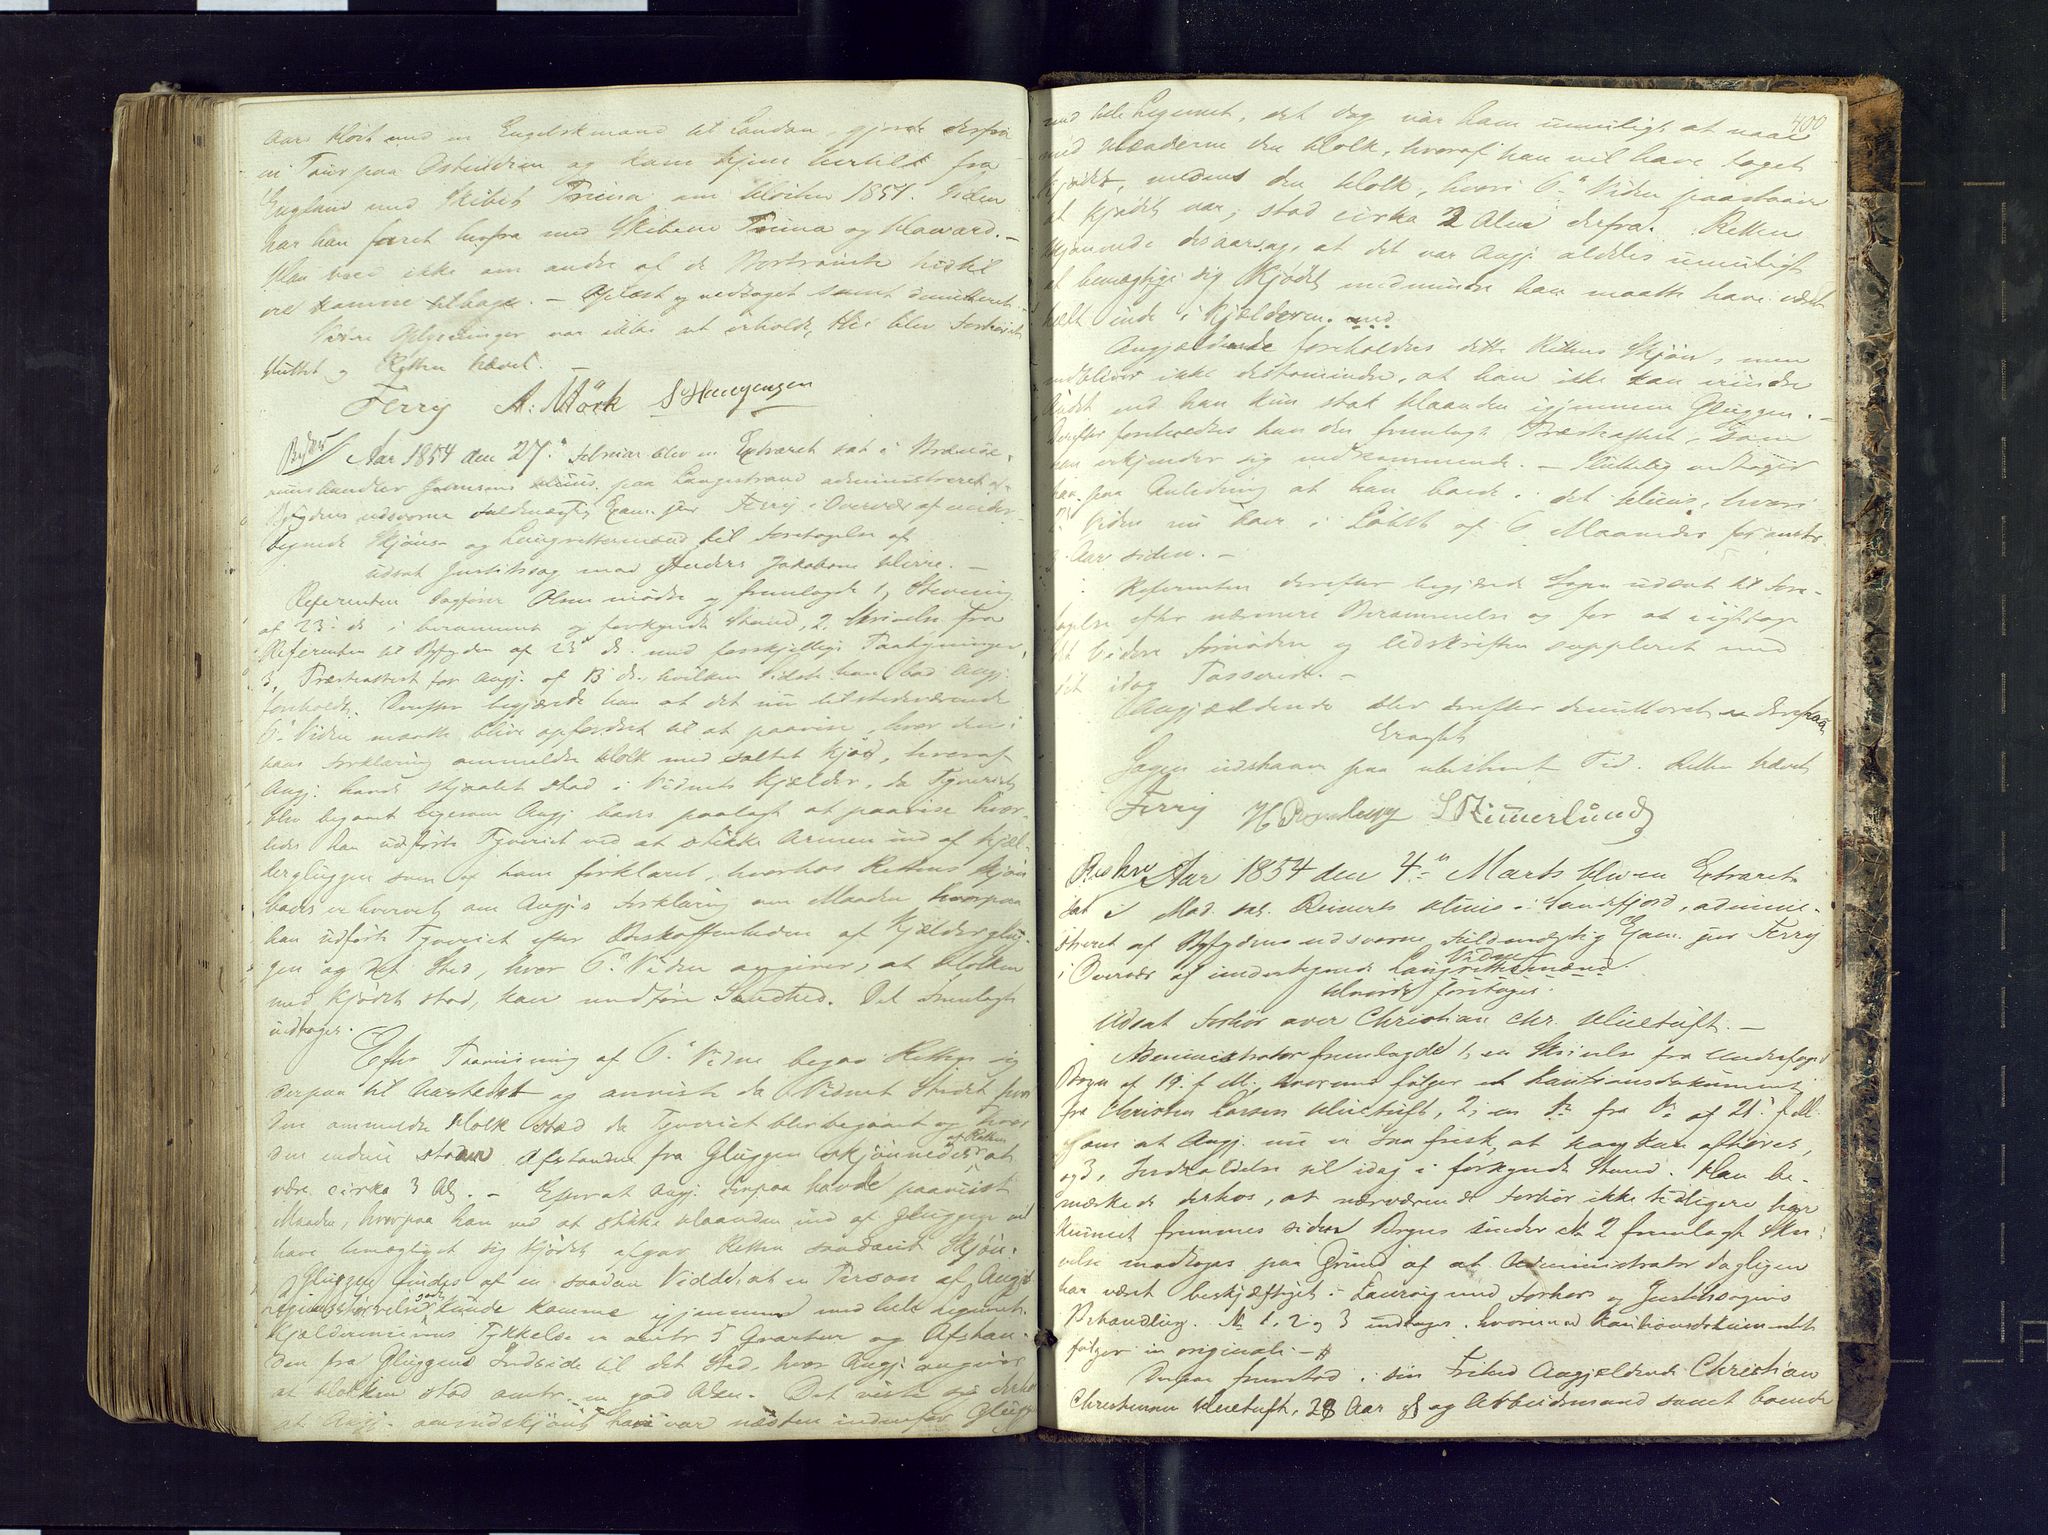 Aar. Kort med en Engelskmand til London, gjorde derfra
en Tour paa Ostindien og kom hjem hertil fra
England med Skibet Trina om Høsten 1851. Siden
har han faret herfra med Skibene Trina og Haward. —
Han veed ikke om andre af de Bortrømte hidtil
ere komne tilbage. — Oplæst og vedtaget samt demitteret.
Videre Oplysninger var ikke at erholde, thi blev Forhøret
sluttet og Retten hævet. —
Ferry A. Mörk S Haagensen
Aar 1854 den 27de Februar blev en Extraret sat i
Huus paa Langestrand administreret af
Byfogdens edsvorne Fuldmægtig Exam. jur Ferry i Overvær af under-
tegnede Skjöns- og Laugrettesmænd til Foretagelse af
udsat Justitssag mod Anders Jakobsen Virre. —
Referenten Sagfører Olsen mødte og fremlagde 1, Stevning
af 23de ds i berammet og forkyndt Stand, 2. Skrivelse fra
Referenten til Byfogden af 23de ds. med forskjellige Paategninger,
3, Præsteattest for Angj. af 13 ds., hvilken sidste han bad Angj.
foreholdt. Derefter begjærede han at det nu tilstedeværende
6te Vidne maatte blive opfordret til at paavise, hvor den i
hans Forklaring ommeldte Holk med saltet Kjød, hvoraf
Angj. havde stjaalet stod i Vidnets Kjælder, da Tyveriet
blev begaaet ligesom Angj. bades paalagt at paavise hvor-
ledes han udførte Tyveriet ved at stikke Armen ind af Kjæl-
dergluggen som af ham forklaret, hvorhos Rettens Skjön
bades erhvervet om Angjs Forklaring om Maaden hvorpaa
han udførte Tyveriet efter Beskaffenheden af Kjælderglug-
gen og det Sted, hvor 6te Vidne opgiver, at Holken
med Kjødet stod, kan medføre Sandhed. Det Fremlagte
indtages.
Efter Paavisning af 6te Vidne begav Retten sig
derpaa til Aastedet og anviste da Vidnet Stedet hvor
den ommeldte Holk stod da Tyveriet blev begaaet og hvor
den endnu staaer Afstanden fra Gluggen skjönnedes af Retten at
være cirka 3 Al. — Efterat Angj. derpaa havde paaviist
Maaden, hvorpaa han ved at stikke Haanden ind af Gluggen vil
have bemægtiget sig Kjödet afgav Retten saadant Skjön:
Gluggen findes af en saadan Vidde, at en Person af Angjs
Legemsstørrelse godt kunde komme igjennem med hele Legemet.
Kjældermuurens Tykkelse er omtr 5 Qvarter og Afstan-
den fra Gluggens Indside til det Sted, hvor Angj. angiver
at Holken stod omtr en god Alen. Det viste sig derhos
at Angj. omendskjönt han var næsten indenfor Gluggen
400
med hele Legemet, det dog var ham umuligt at naae
med Hænderne den Holk, hvoraf han vil have taget
Kjödet, medens den Holk, hvori 6te Vidne paastaaer
at Kjödet var, stod cirka 2 Alen derfra. Retten
skjönnede desaarsag, at det var Angj. aldeles umuligt
at bemægtige sig Kjødet medmindre han maatte have været
heelt inde i Kjælderen.
Angjældende foreholdes dette Rettens Skjön, men
vedbliver ikke destomindre, at han ikke kan erindre
Andet end han kun stak Haanden igjennem Gluggen. —
Derefter forelæstes han den fremlagte Præsteattest, som
han erkjender sig vedkommende. — Sluttelig vedtager
han paa Anledning at han boede i det Huus, hvori
6te Vidne nu boer i Løbet af 6 Maaneder for omtr.
3 Aar siden. —
Referenten derefter begjærede Sagen udsat til Fore-
tagelse efter nærmere Berammelse og for at iagttage
det videre Fornødne og Udskriften suppleret med
det idag Passerede. —
Angjældende blev derefter demitteret — derefter
Eragtet
Sagen udstaaer paa ubestemt Tid. Retten hævet
Ferry S Rimerlund
Beskr Aar 1854 den 4de Marts blev en Extraret
sat i Mad. sal. Reinerts Huus i Sandefjord, admini-
streret af Byfogdens edsvorne Fuldmægtig Exam. jur Ferry
i Overvær af undertegnede Laugrettesmænd Vidner.
Hvorda foretoges:
Udsat Forhør over Christian Chr. Huetuft. —
Administrator fremlagde 1, en Skrivelse fra Underfoged
Bryn af 19. f. M., hvormed følger et Kautionsdokument
fra Christen Larsen Huetuft, 2, en do fra do af 21. f. M.
om at Angj. nu er saa frisk, at han kan afhøres,
og 3, Indkaldelse til idag i forkyndt Stand. Han be-
mærkede derhos, at nærværende Forhør ikke tidligere har
kunnet fremmes siden Bryns under No 2 fremlagte Skri-
velse modtoges paa Grund af at Administrator dagligen
har været beskjæftiget i Laurvig med Forhørs og Justitssagers
Behandling. No 1, 2 og 3 indtages, hvorimod Kautionsdokumentet
følger in originali. —
Derpaa fremstod i sin Frihed Angjældende Christian
Christensen Huetuft, 28 Aar gl og Arbeidsmand samt boende